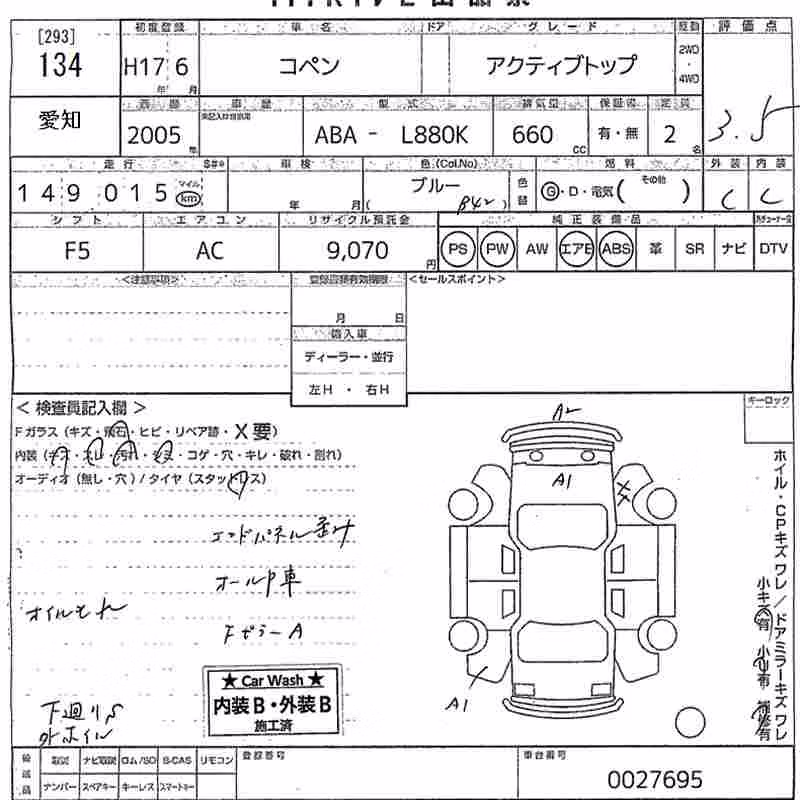 [293]
134
初度登録 車名 ドア グレード 駆動 評価点
H17 6 コペン アクティブトップ 2WD・4WD
年 月
愛知
車歴 型式 排気量 保証書 定員
2005 ABA - L880K 660 有・無 2 3.5
年 CC 名
走行 車検 色(Col.No) 燃料 外装 内装
149015 マイル km 年 月 ブルー 色替 Ⓖ・D・電気( その他 ) C C
シフト エアコン リサイクル預託金 純正装備品
F5 AC 9,070 円 PS PW AW エアB ABS 革 SR ナビ DTV
<注意事項> <セールスポイント>
月 日
輸入車
ディーラー・並行
左H ・ 右H
< 検査員記入欄 > キーロック
Fガラス (キズ・飛石・ヒビ・リペア跡・X要)
内装 (キズ・スレ・汚れ・シミ・コゲ・穴・キレ・破れ・割れ)
オーディオ (無し・穴) / タイヤ (スタッドレス)
A2
A1
XX
オールP車
オイルもれ
FゼラーA
A1
★ Car Wash ★
内装B・外装B
施工済
下廻りS
外ホイル
ホイル・CPキズワレ/ドアミラーキズワレ
小キズ有 小凹有 補修有
取説 ナビ取説 ロム/SD B-CAS リモコン 登録番号 車台番号
ナンバー スペアキー キーレス スマートキー
0027695